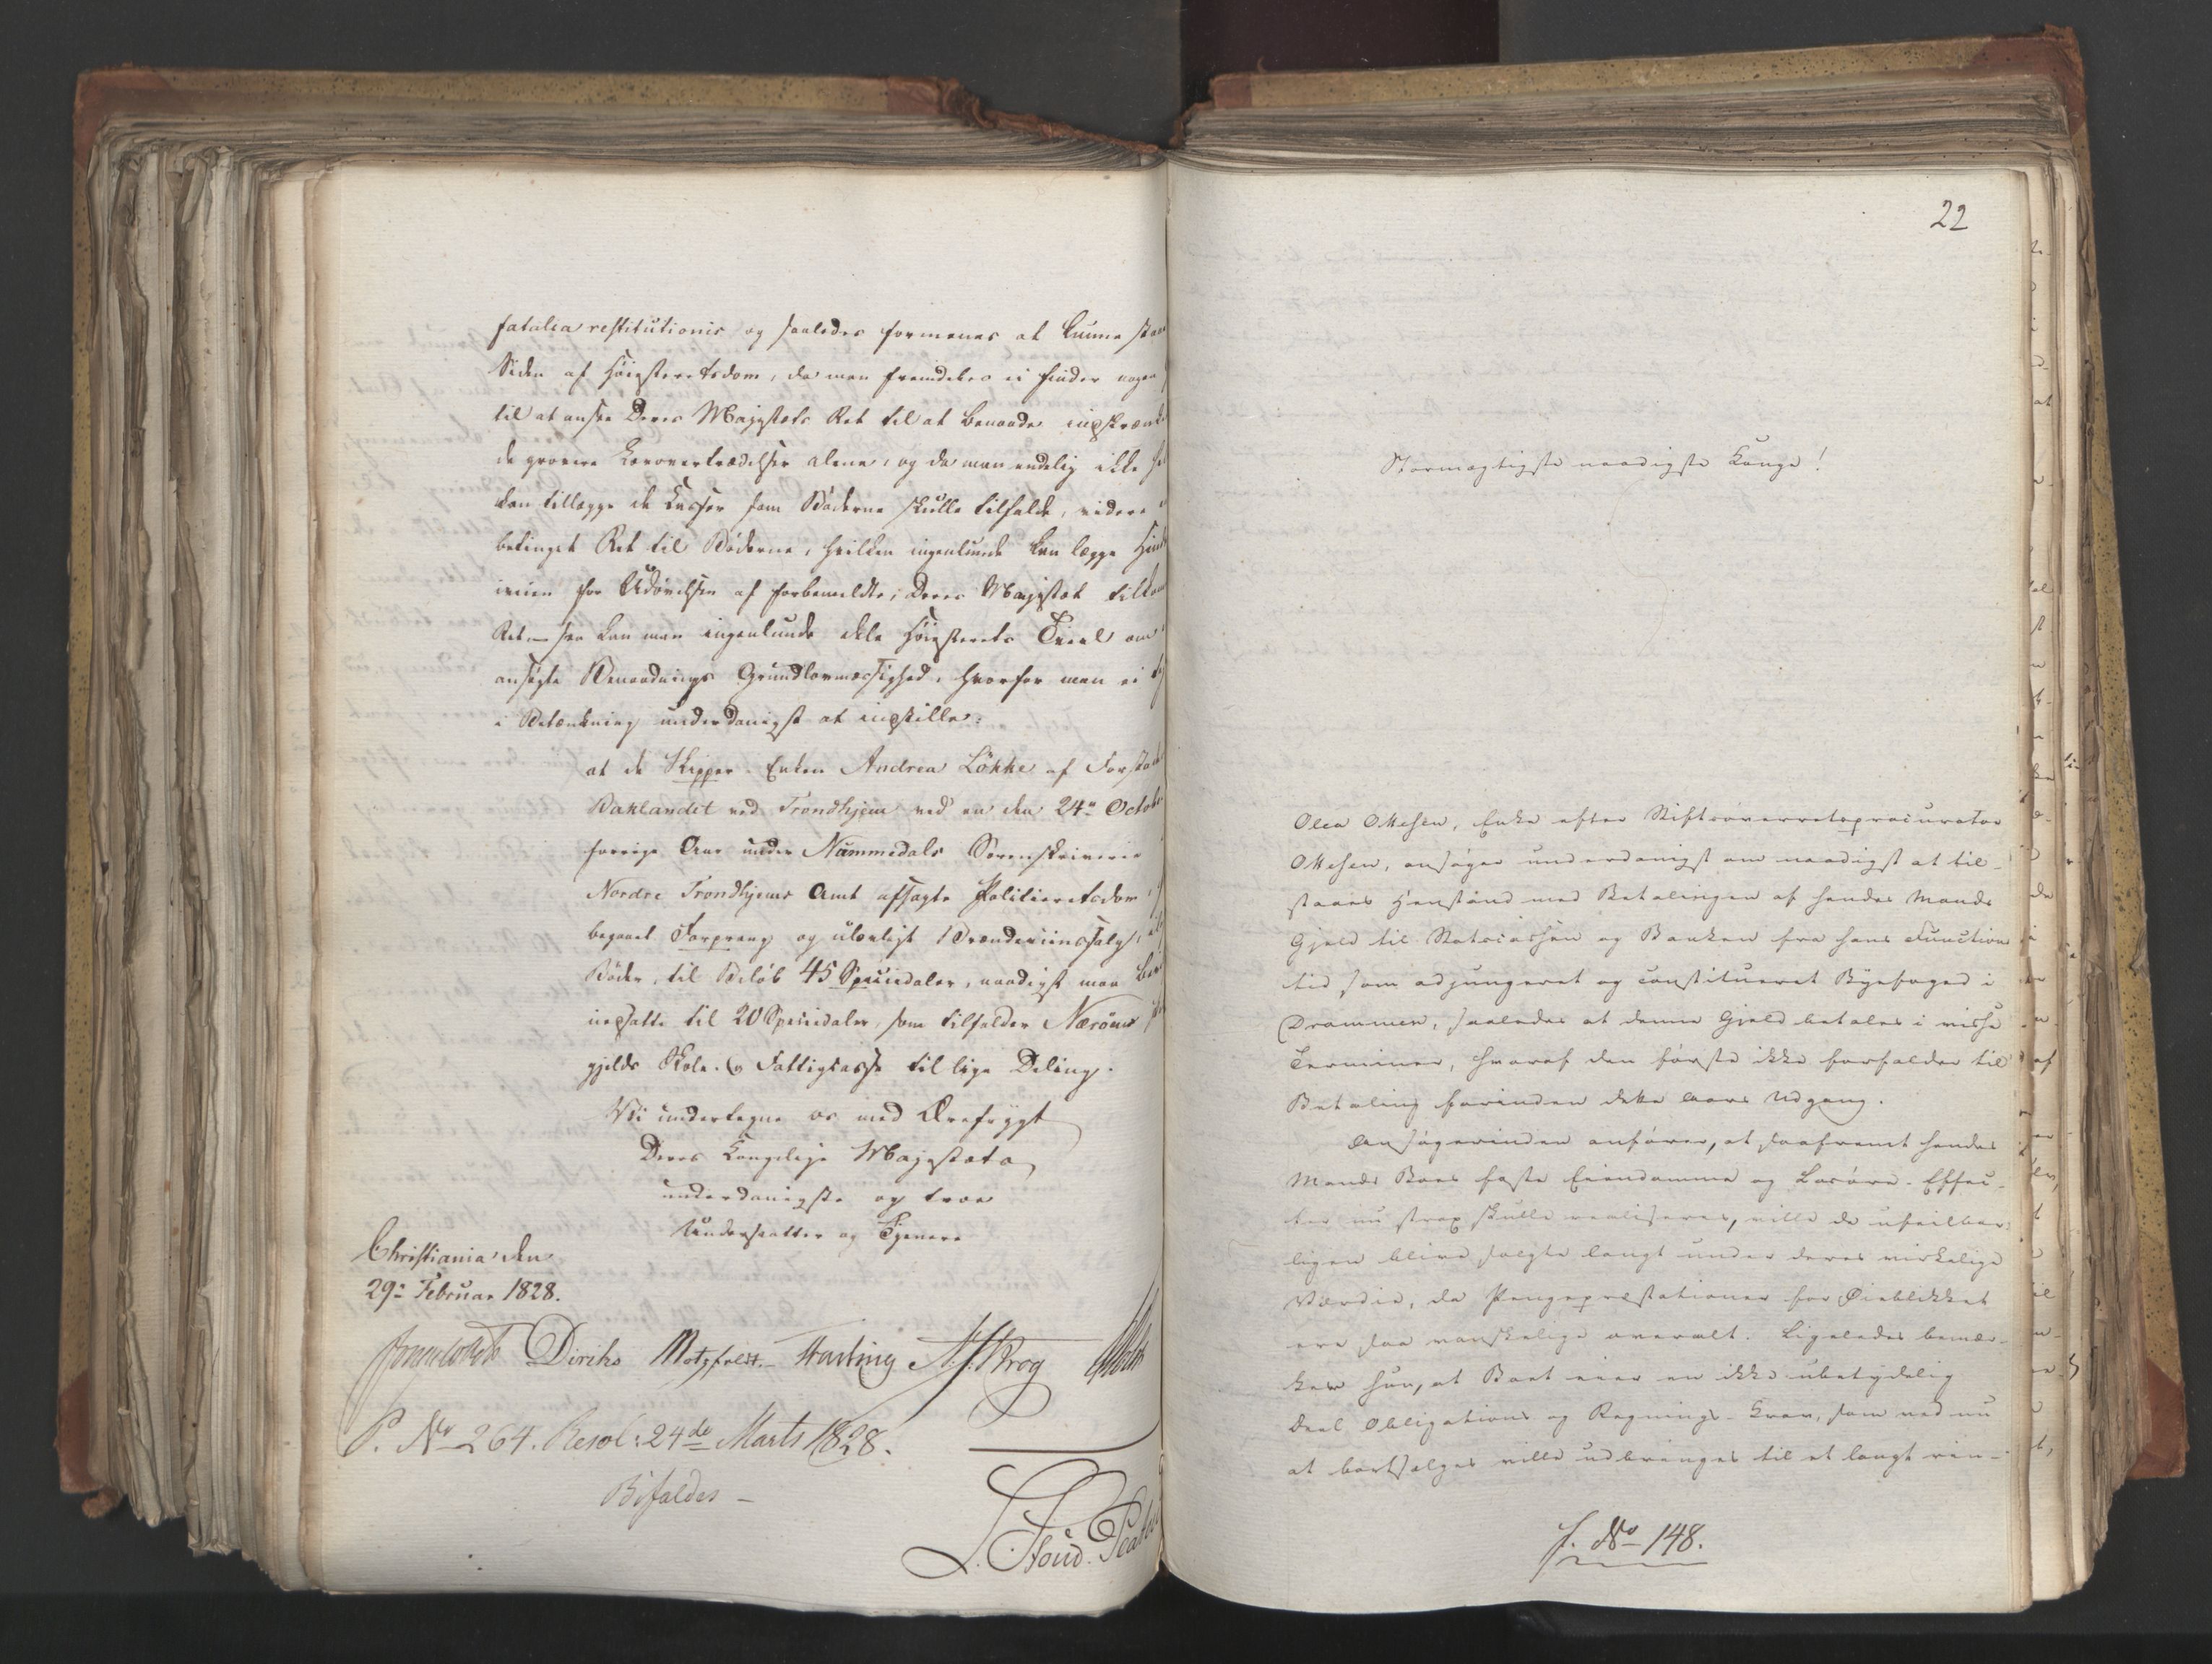 fatalia restitutionis og saaledes formenes at kunne staae
Siden af Høiesteretsdom, da man fremdeles ei finder nogen
til at ansee Deres Majestæts Ret til at benaade indskrænket
de grovere Lovovertrædelser alene, og da man endelig ikke
kan tillægge de Casser som Bøderne skulle tilfalde, videre
betinget Ret til Bøderne, hvilken ingenlunde kan lægge Hind
for Udøvelsen af forbemeldte, Deres Majestæt
Ret – saa kan man ingenlunde dele Høiesterets Tvivl om
ansøgte Benaadnings Grundlovmæssighed, hvorfor man ei
i Betænkning underdanigst at indstille:
at de Skipper-Enken Andrea Lökke af Forstaden
Baklandet ved Trondhjem ved en den 24de Octob
forrige Aar under Nummedals Sorenskriverie
Nordre Trondhjems Amt afsagte Politieretsdom
begaaet Forprang og ulovligt Brændeviinssalg,
Bøder, til Beløb 45 Speciedaler, naadigst maa
nedsatte til 20 Speciedaler, som tilfalder Nærøens
gjelds Skole- og Fattigcasse til lige Deling.
Vi undertegne os med Ærefrygt
Deres Kongelige Majestæts
underdanigste og troe
Undersaatter og Tjenere
Christiania den
29de Februar 1828.
Diriks Motzfeldt. Krog
P. No 264. Resol: 24de Marts 1828.
Bifaldes –
22
Stormægtigste naadigste Konge!
Olea Ottesen, Enke efter Stiftsoverretsprocurator
Ottesen, ansøger underdanigst om naadigst at til-
staaes Henstand med Betalingen af hendes Mands
Gjeld til Statscassen og Banken fra hans Functions
tid som adjungeret og constitueret Byefoged i
Drammen, saaledes at denne Gjeld betales i visse
Terminer, hvoraf den første ikke forfalder til
Betaling forinden dette Aars Udgang.
Ansøgerinden anfører, at saafremt hendes
Mands Boes faste Eiendomme og Løsøre-Effec-
ter nu strax skulle realiseres, ville de ufeilbar-
ligen blive solgte langt under deres virkelige
Værdie, da Pengeprestationer for Øieblikket
ere saa vanskelige overalt. Ligeledes bemær-
ker hun, at Boet eier en ikke ubetydelig
Deel Obligations og Regnings-Krav, som ved nu
at bortsælges ville udbringes til et langt rin-
J. No 148.